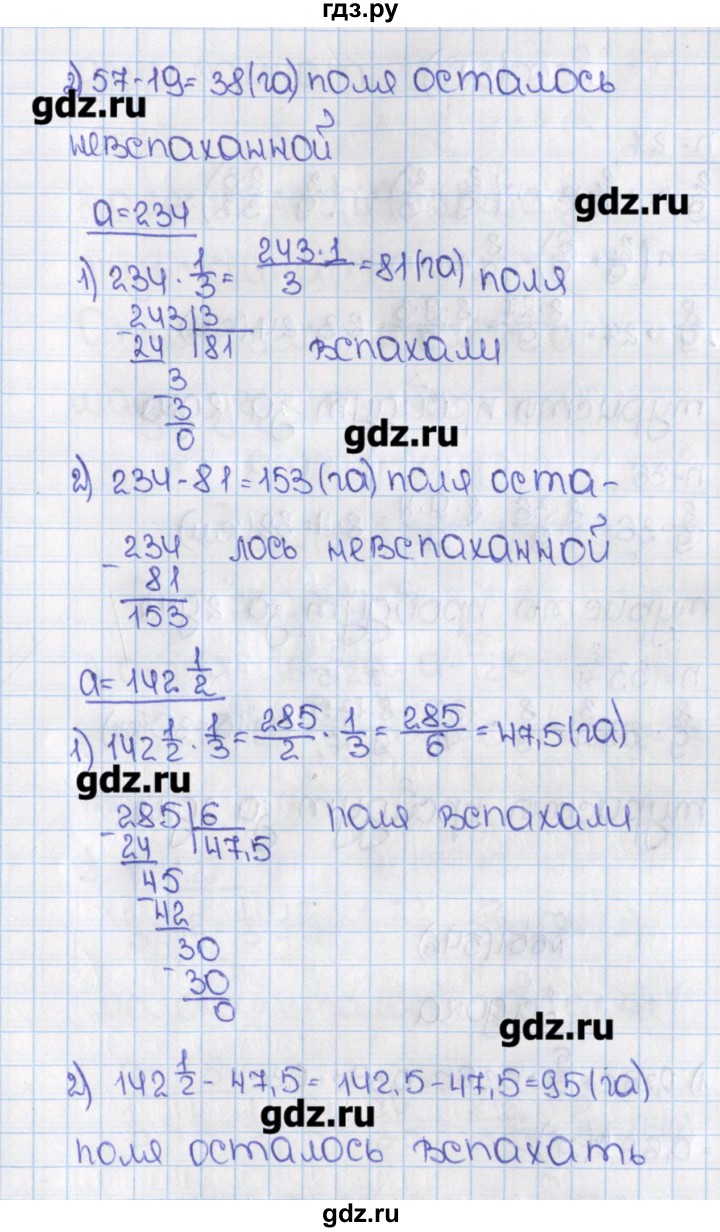 гдз.ру
2) 57-19= 38(га) поля осталось
gdz.ru
невспаханной
a=234
gdz.ru
1) 234 · 1/3 = 243·1/3 =81(га) поля
243 3
24 81 вспахали
3
3
0
gdz.ru
2) 234-81=153(га) поля оста-
234 лось невспаханной
81
153
a= 142 1/2
1) 142 1/2 · 1/3 = 285/2 · 1/3 = 285/6 = 47,5(га)
gdz.ru
285 6 поля вспахали
24 47,5
45
42
30
30
0
gdz.ru
2) 142 1/2 - 47,5= 142,5-47,5=95(га)
gdz.ru
поля осталось вспахать
gdz.ru